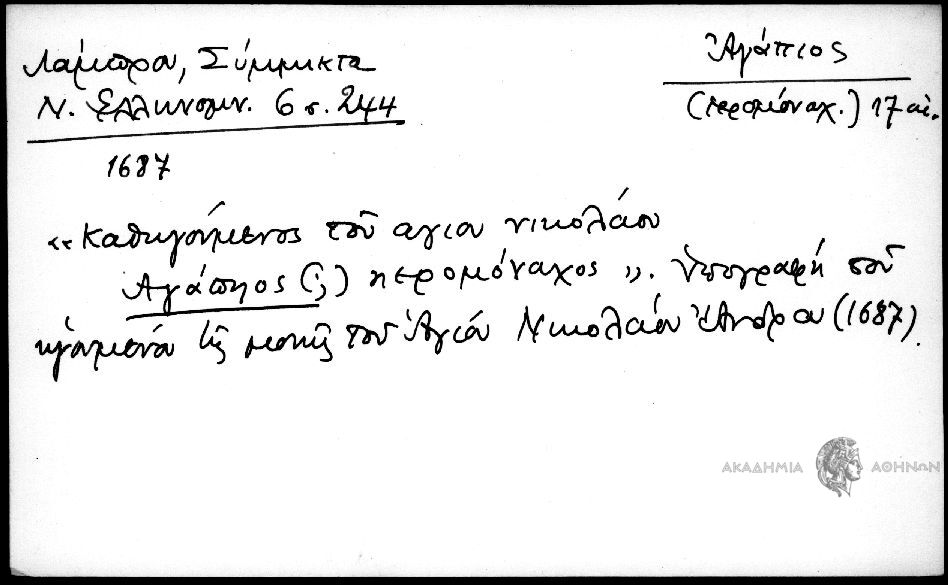 Λάμπρου, Σύμμικτα
Ν. Ἑλληνομν. 6 σ. 244
Ἀγάπιος
(ἱερομόναχ.) 17 αἰ.
1687
«καθηγούμενος τοῦ αγίου νικολάου
Αγάπηος (;) ηερομόναχος». Ὑπογραφή τοῦ
ἡγουμένου τῆς μονῆς τοῦ Ἁγίου Νικολάου Ἄνδρου (1687).
ΑΚΑΔΗΜΙΑ ΑΘΗΝΩΝ